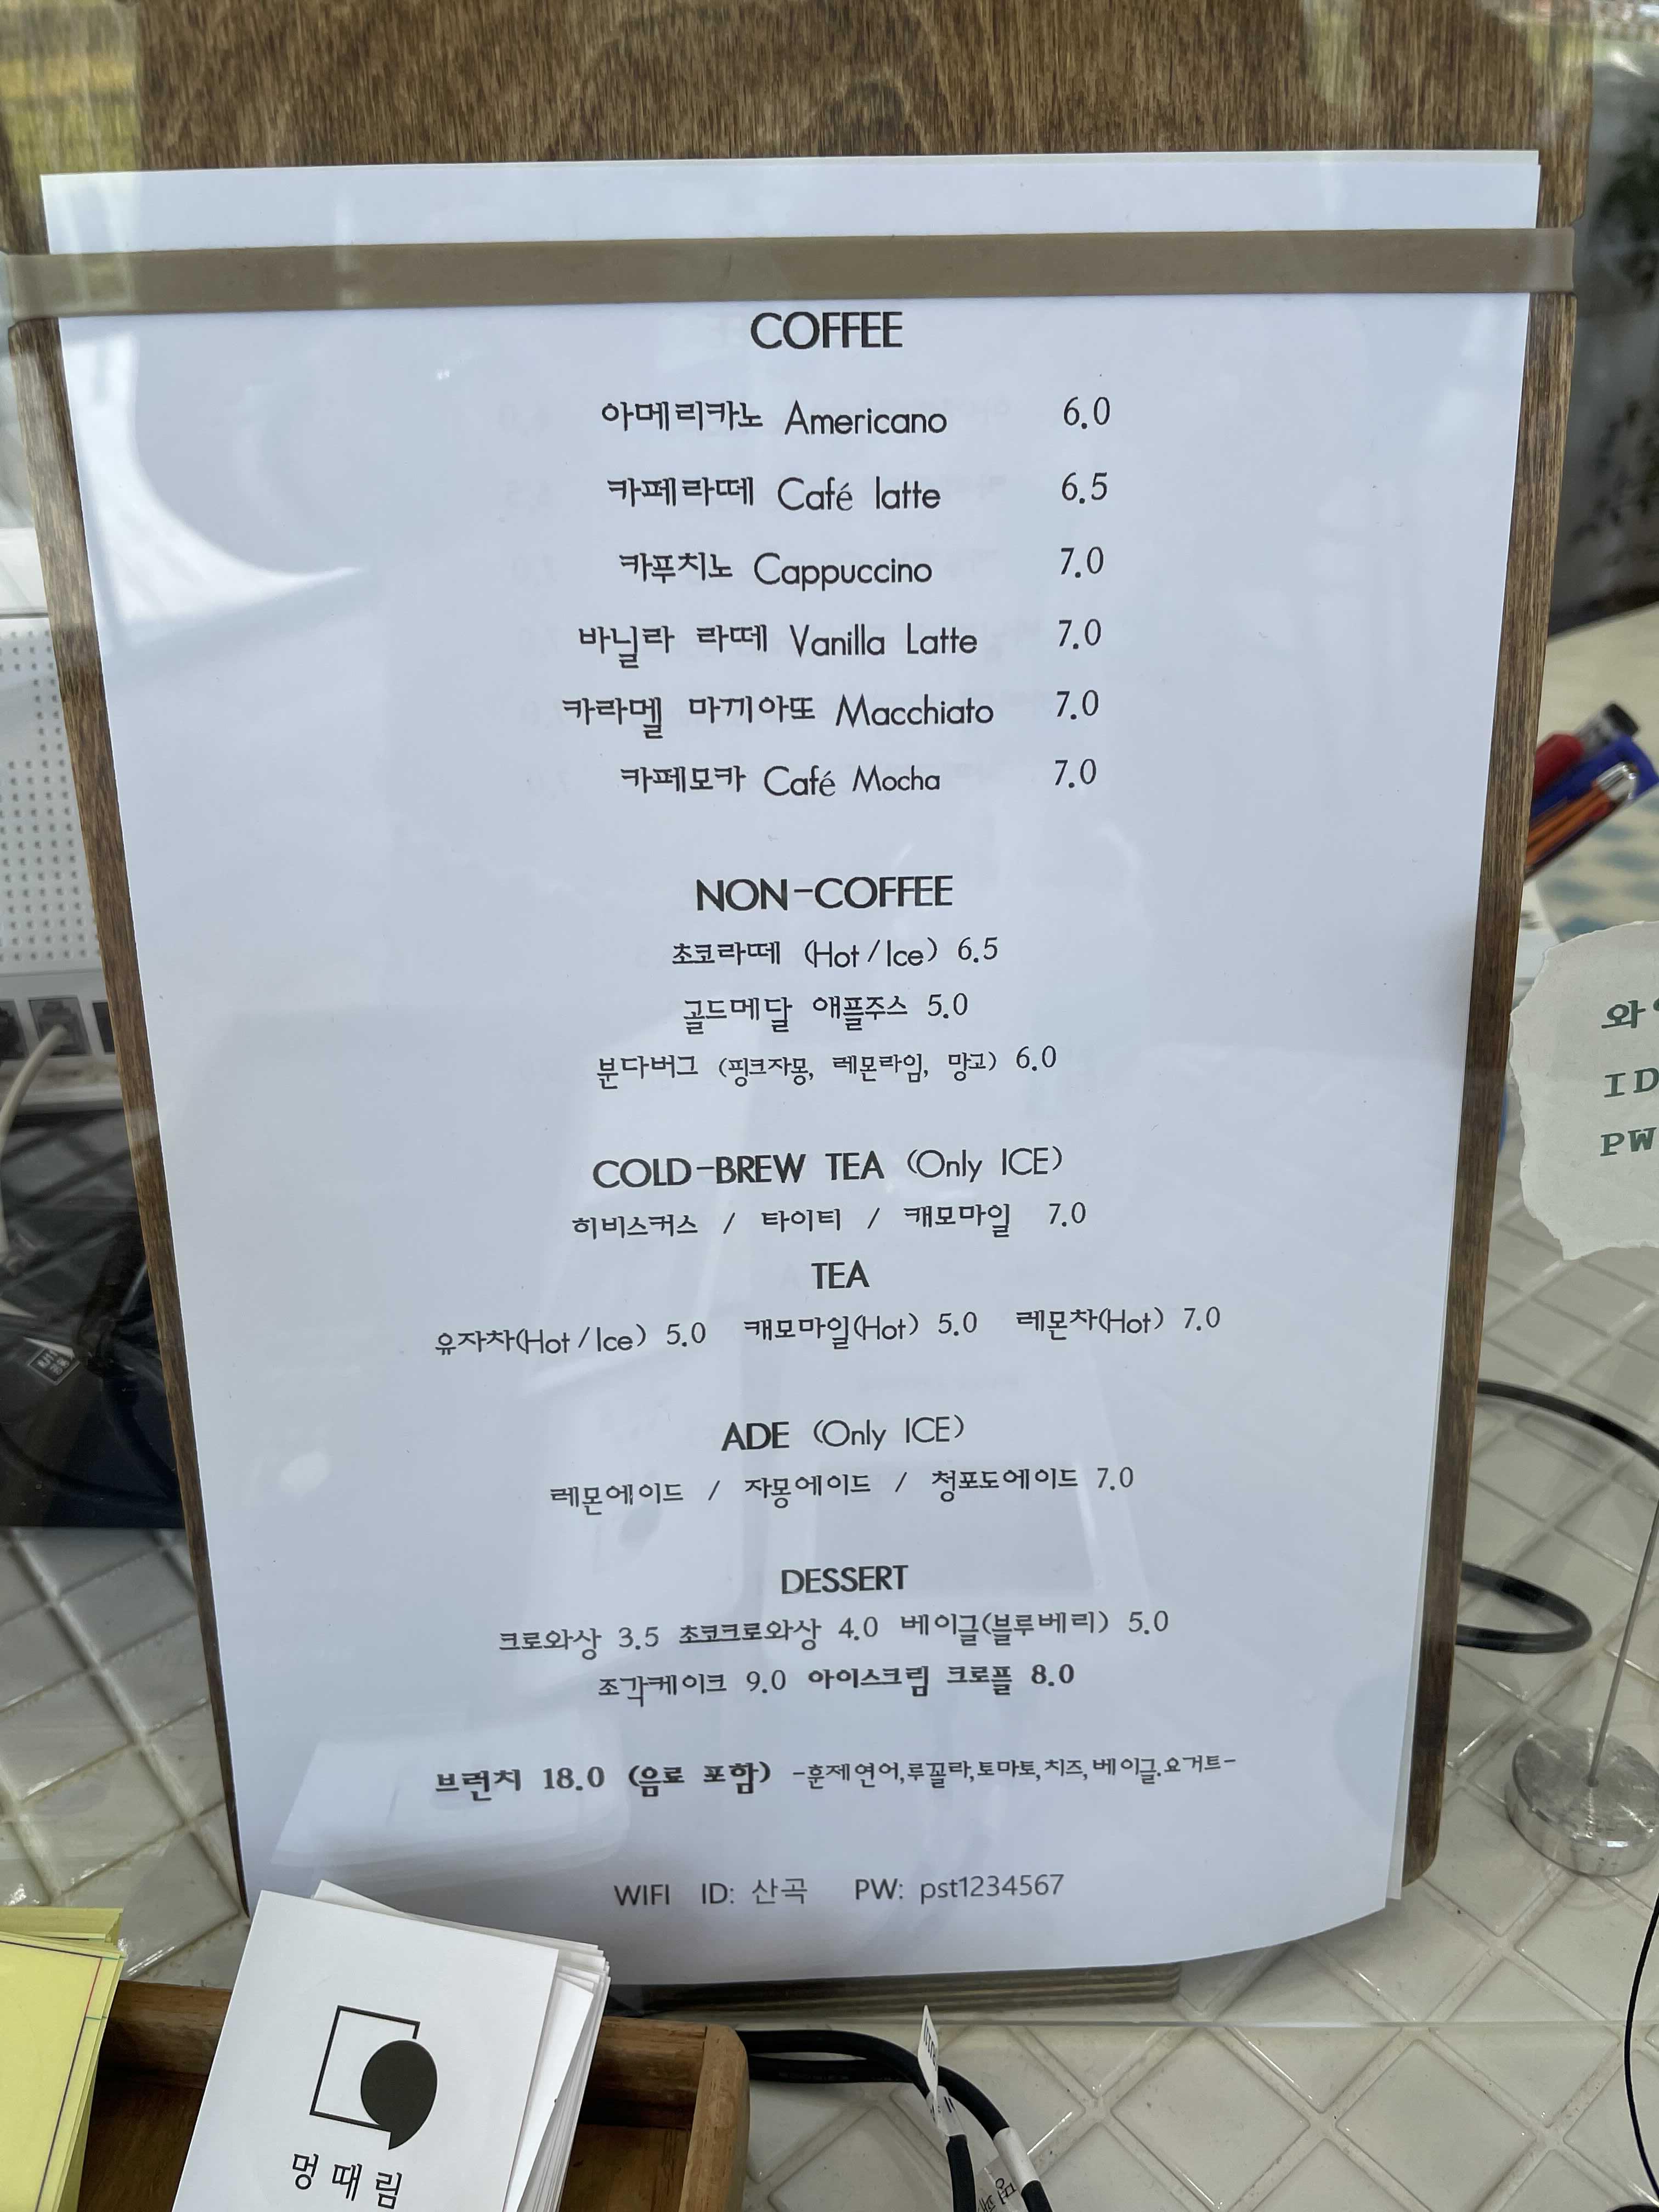 COFFEE
아메리카노 Americano 6.0
카페라떼 Café latte 6.5
카푸치노 Cappuccino 7.0
바닐라 라떼 Vanilla Latte 7.0
카라멜 마끼아또 Macchiato 7.0
카페모카 Café Mocha 7.0
NON-COFFEE
초코라떼 (Hot/Ice) 6.5
골드메달 애플주스 5.0
분다버그 (핑크자몽, 레몬라임, 망고) 6.0
COLD-BREW TEA (Only ICE)
히비스커스 / 타이티 / 캐모마일 7.0
TEA
유자차(Hot/Ice) 5.0 캐모마일(Hot) 5.0 레몬차(Hot) 7.0
ADE (Only ICE)
레몬에이드 / 자몽에이드 / 청포도에이드 7.0
DESSERT
크로와상 3.5 초코크로와상 4.0 베이글(블루베리) 5.0
조각케이크 9.0 아이스크림 크로플 8.0
브런치 18.0 (음료 포함) -훈제연어,루꼴라,토마토,치즈,베이글.요거트-
WIFI ID: 산곡 PW: pst1234567
ID
PW
멍때림